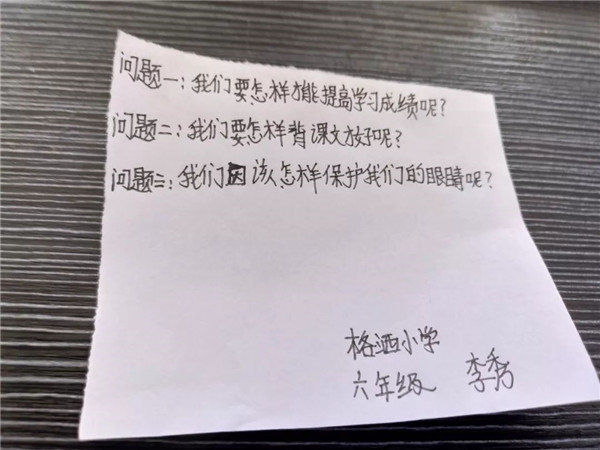 问题一:我们要怎样才能提高学习成绩呢?
问题二:我们要怎样背课文才好呢?
问题三:我们因该怎样保护我们的眼睛呢?
格洒小学
六年级 李秀